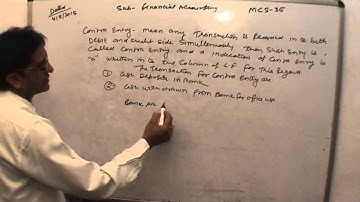 Delhi
4/5/2015
Sub- Financial Accounting
MCS-35
Contra Entry- mean any Transaction is Record in its both
Debit and credit side Simultaneously then Such Entry is
Called Contra Entry. and a indication of Contra Entry is
"C" written in is the Column of L.F for This Record
The Transaction for Contra Entry are
① Cash Deposite in Bank
② Cash withdrawn from Bank for office use
Bank are